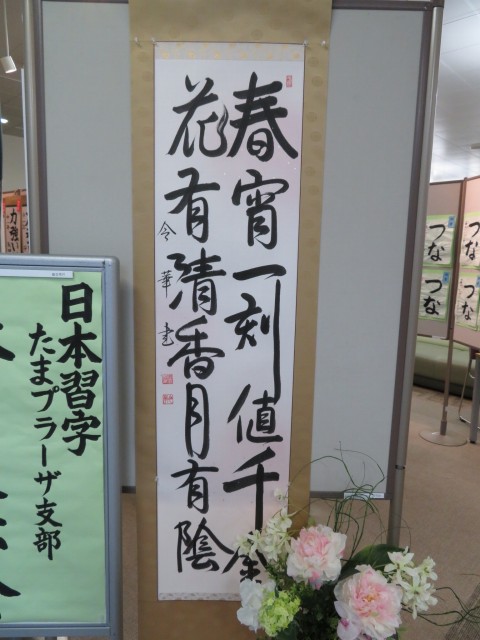 春宵一刻値千金
花有清香月有陰
令華書
日本習字
たまプラーザ支部
つな
つな
つな
つな
力強い